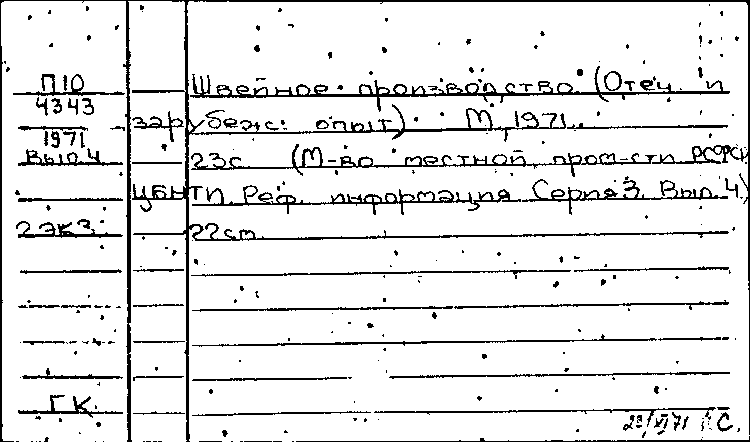 П10 Швейное производство (Отеч. и
4343
зарубеж. опыт). М, 1971.
1971
Вып. 4 23с (М-во местной пром-сти РСФСР
ЦБНТИ. Реф. информация Серия 3. Вып. 4.)
2 экз. 22см
ГК
23/XI 71 С.